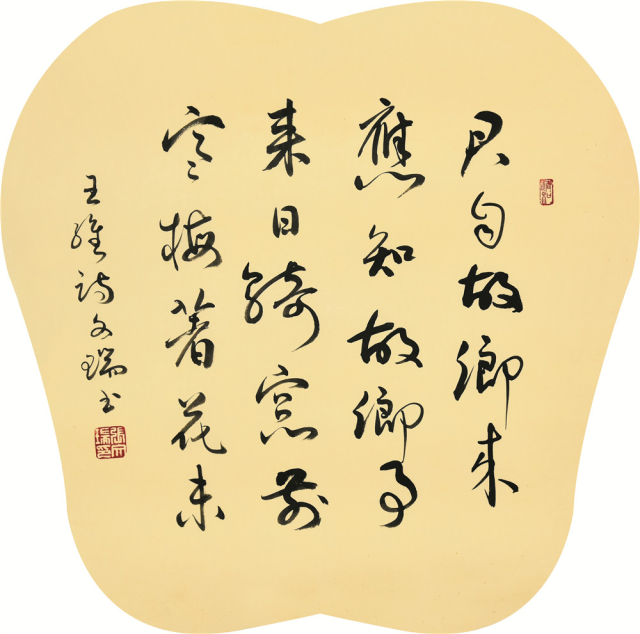 君自故鄉來
應知故鄉事
來日綺窓前
寒梅著花未
王維詩文瑞書
張文瑞印